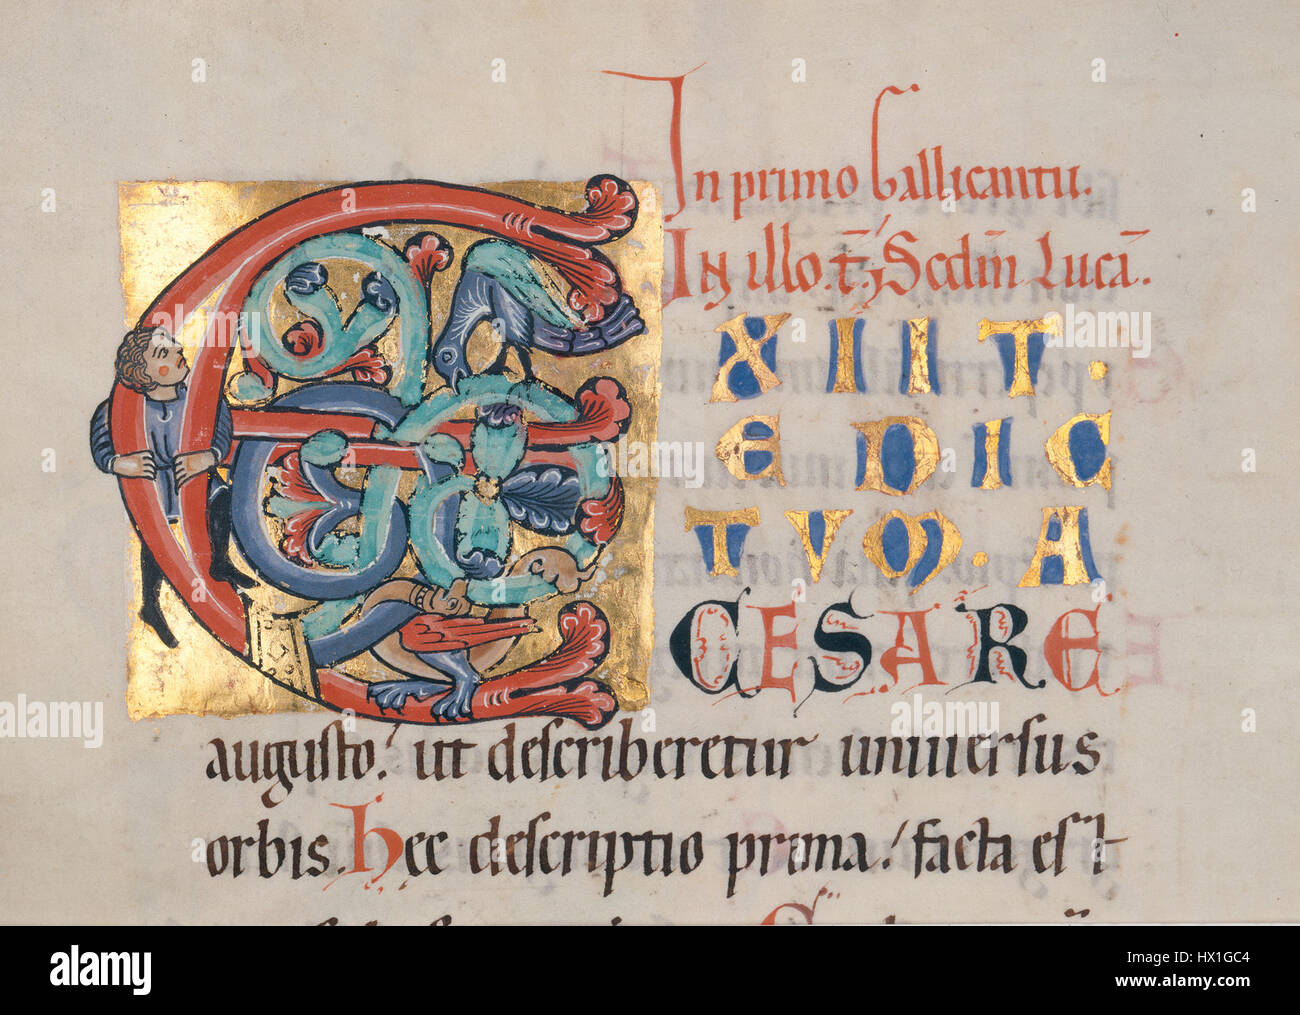 In primo Gallicantu.
In illo. t̄; Scdm̄ Lucā.
EXIIT.
EDIC
TUM. A
CESARE
augusto. ut describeretur universus
orbis. Hec descriptio prima. facta est
alamy
Image ID: HX1GC4
www.alamy.com